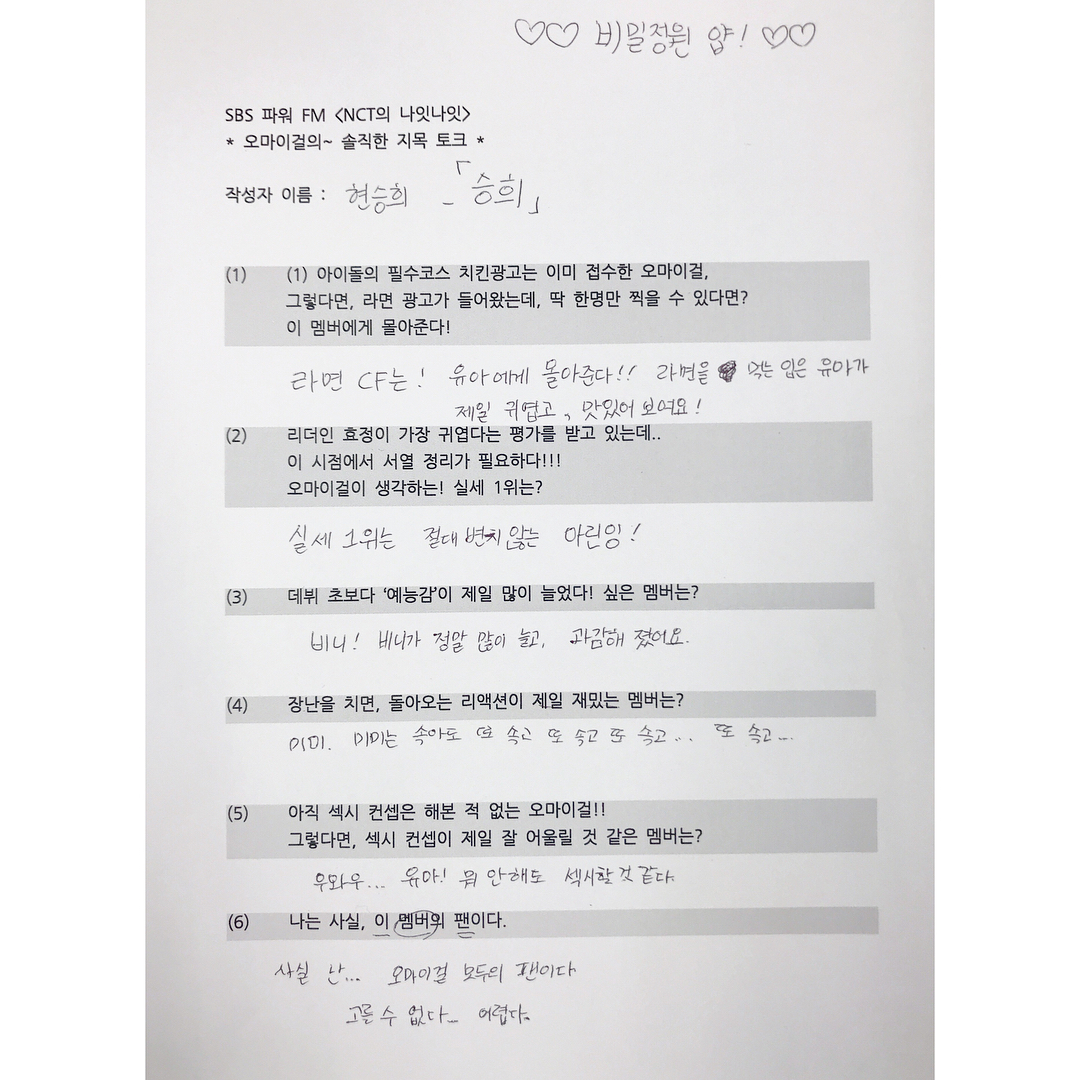 ♡♡ 비밀정원 얍! ♡♡
SBS 파워 FM <NCT의 나잇나잇>
* 오마이걸의~ 솔직한 지목 토크 *
작성자 이름 : 현승희 -「승희」
(1) (1) 아이돌의 필수코스 치킨광고는 이미 접수한 오마이걸,
그렇다면, 라면 광고가 들어왔는데, 딱 한명만 찍을 수 있다면?
이 멤버에게 몰아준다!
라면 CF는! 유아에게 몰아준다!! 라면을 먹는 입은 유아가
제일 귀엽고, 맛있어 보여요!
(2) 리더인 효정이 가장 귀엽다는 평가를 받고 있는데..
이 시점에서 서열 정리가 필요하다!!!
오마이걸이 생각하는! 실세 1위는?
실세 1위는 절대 변치않는 아린잉!
(3) 데뷔 초보다 '예능감'이 제일 많이 늘었다! 싶은 멤버는?
비니! 비니가 정말 많이 늘고, 과감해 졌어요.
(4) 장난을 치면, 돌아오는 리액션이 제일 재밌는 멤버는?
미미. 미미는 속아도 또 속고 또 속고 또 속고... 또 속고...
(5) 아직 섹시 컨셉은 해본 적 없는 오마이걸!!
그렇다면, 섹시 컨셉이 제일 잘 어울릴 것 같은 멤버는?
우와우... 유아! 뭐 안해도 섹시할것 같다.
(6) 나는 사실, 이 멤버의 팬이다.
사실 난... 오마이걸 모두의 팬이다
고를 수 없다... 어렵다.